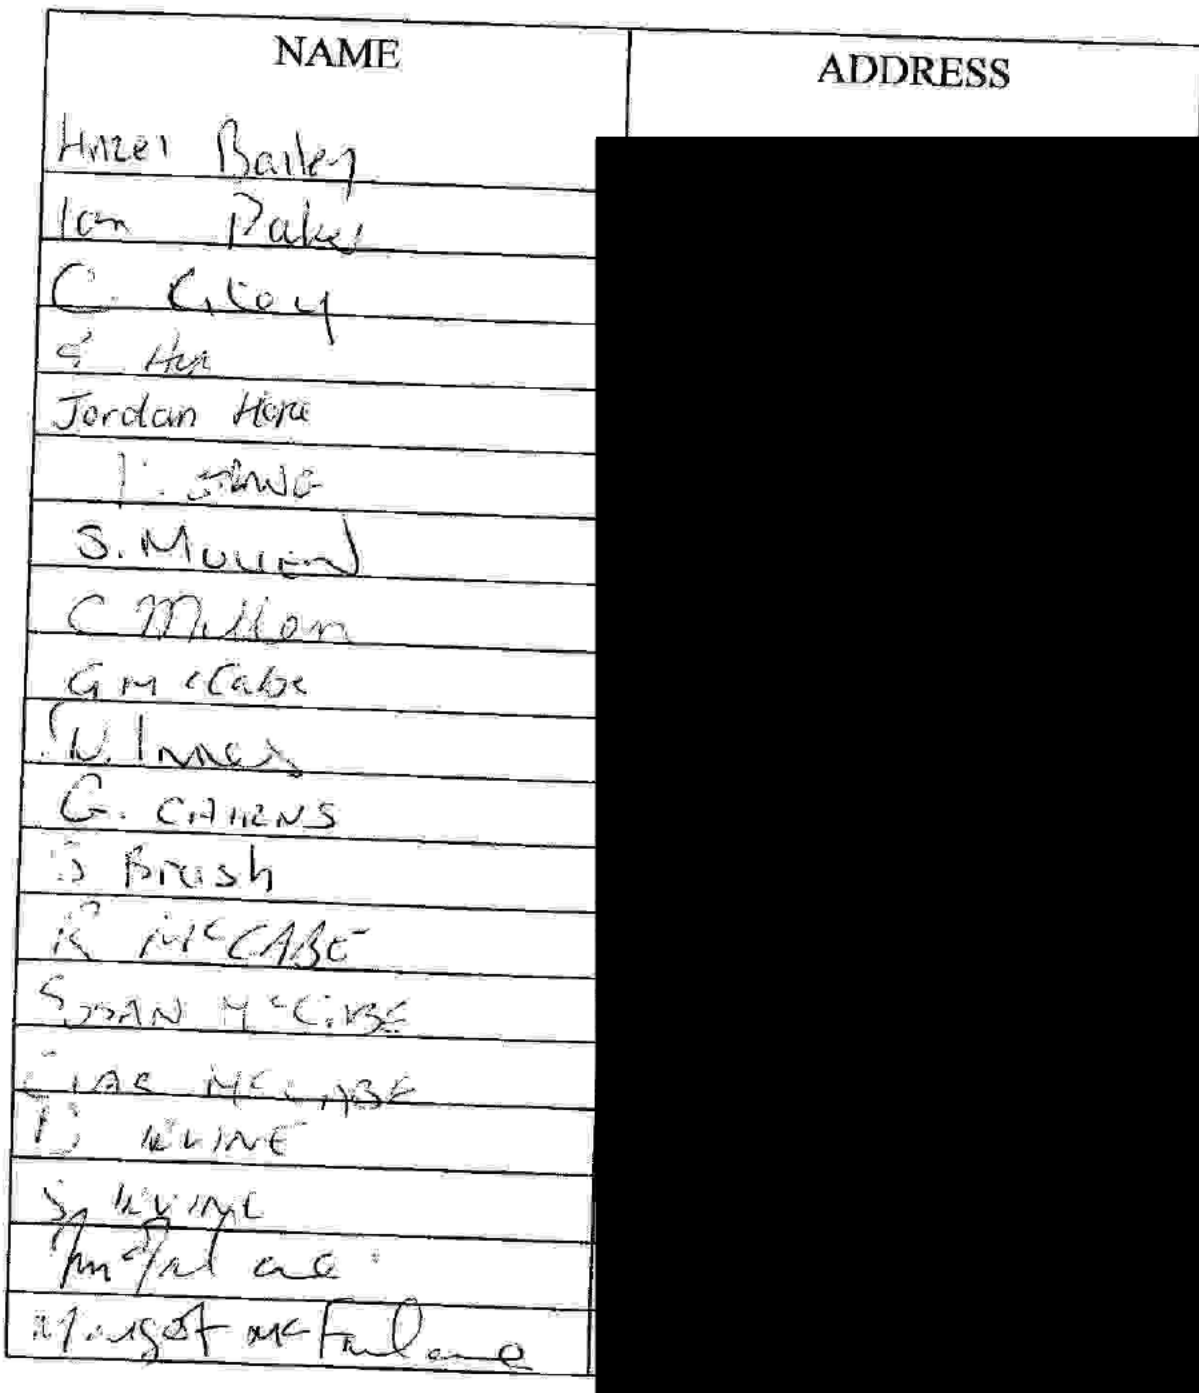 NAME ADDRESS
Hazel Bailey
Ian Baker
C.
Jordan Hope
S. MULLEN
C Millan
G McCabe
N. Innes
G. CAIRNS
Brush
R McCABE
SUSAN McCABE
McCABE
D IRVINE
S IRVINE
Margot McFarlane